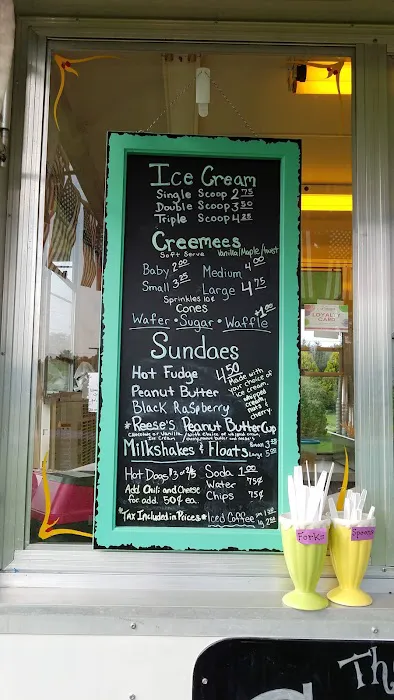 Ice Cream
Single Scoop 2.75
Double Scoop 3.50
Triple Scoop 4.25
Creemees
Soft Serve Vanilla/Maple/twist
Baby 2.00 Medium 4.00
Small 3.25 Large 4.75
Sprinkles 10¢
Cones +1.00
Wafer • Sugar • Waffle
Sundaes
Hot Fudge 4.50
Peanut Butter
Black Raspberry
Made with
your choice of
ice cream,
whipped
cream,
nuts &
cherry.
*Reese's Peanut Butter Cup
Milkshakes & Floats
Large 5.00
Hot Dogs $3 or 2/5 Soda 1.00
Add Chili and Cheese Water 75¢
for add. 50¢ ea. Chips 75¢
*Tax Included in Prices* Iced Coffee
LOYALTY
CARD
Forks
Spoons
Th